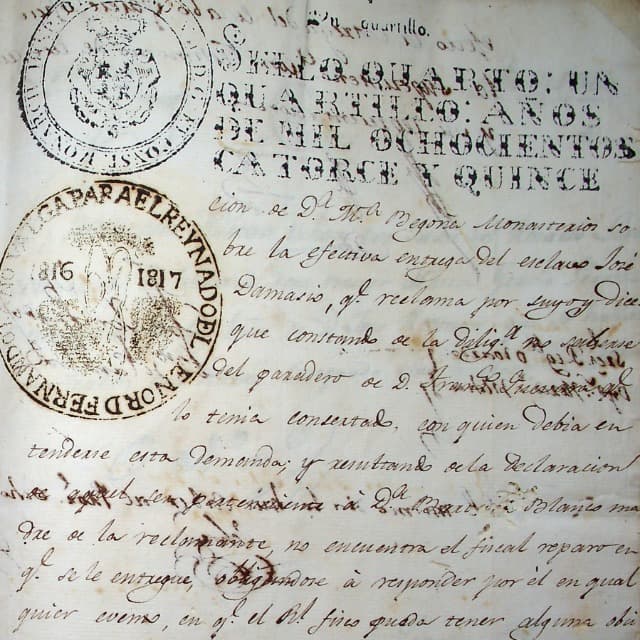 Un quartillo.
SELLO QUARTO: UN
QUARTILLO: AÑOS
DE MIL OCHOCIENTOS
CATORCE Y QUINCE
VALGA PARA EL REYNADO DEL SEÑOR D FERNANDO
1816 1817
cion de D.ª M.ª Begoña Monasterios so
bre la efectiva entrega del esclavo José
Damasio, q.e reclama por suyo, y dice
que constando de la dilig.ª no saberse
del paradero de D.
lo tenia consertado, con quien debia en
tenderse esta demanda; y resultando de la declaracion
de aquel ser perteneciente à D.ª Blanco ma
dre de la reclamante, no encuentra el fiscal reparo en
q.e se le entregue, obligandose à responder por él en qual
quier evento, en q.e el R.l fisco pueda tener alguna